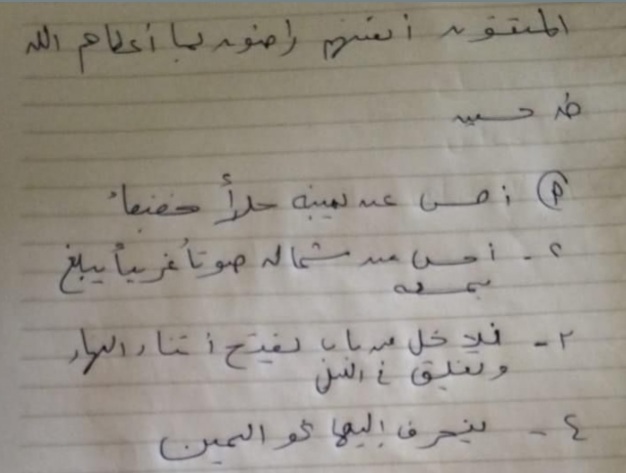 المتقون أنفسهم راضون بما أعطاهم الله
طه حسين
١ أحس عن يمينه حراً خفيفاً
٢ - أحس من شماله صوتاً غريباً يبلغ
سمعه
٣ - فيدخل من باب يفتح أثناء النهار
ويغلق في الليل
٤ - ينحرف إليها نحو اليمين